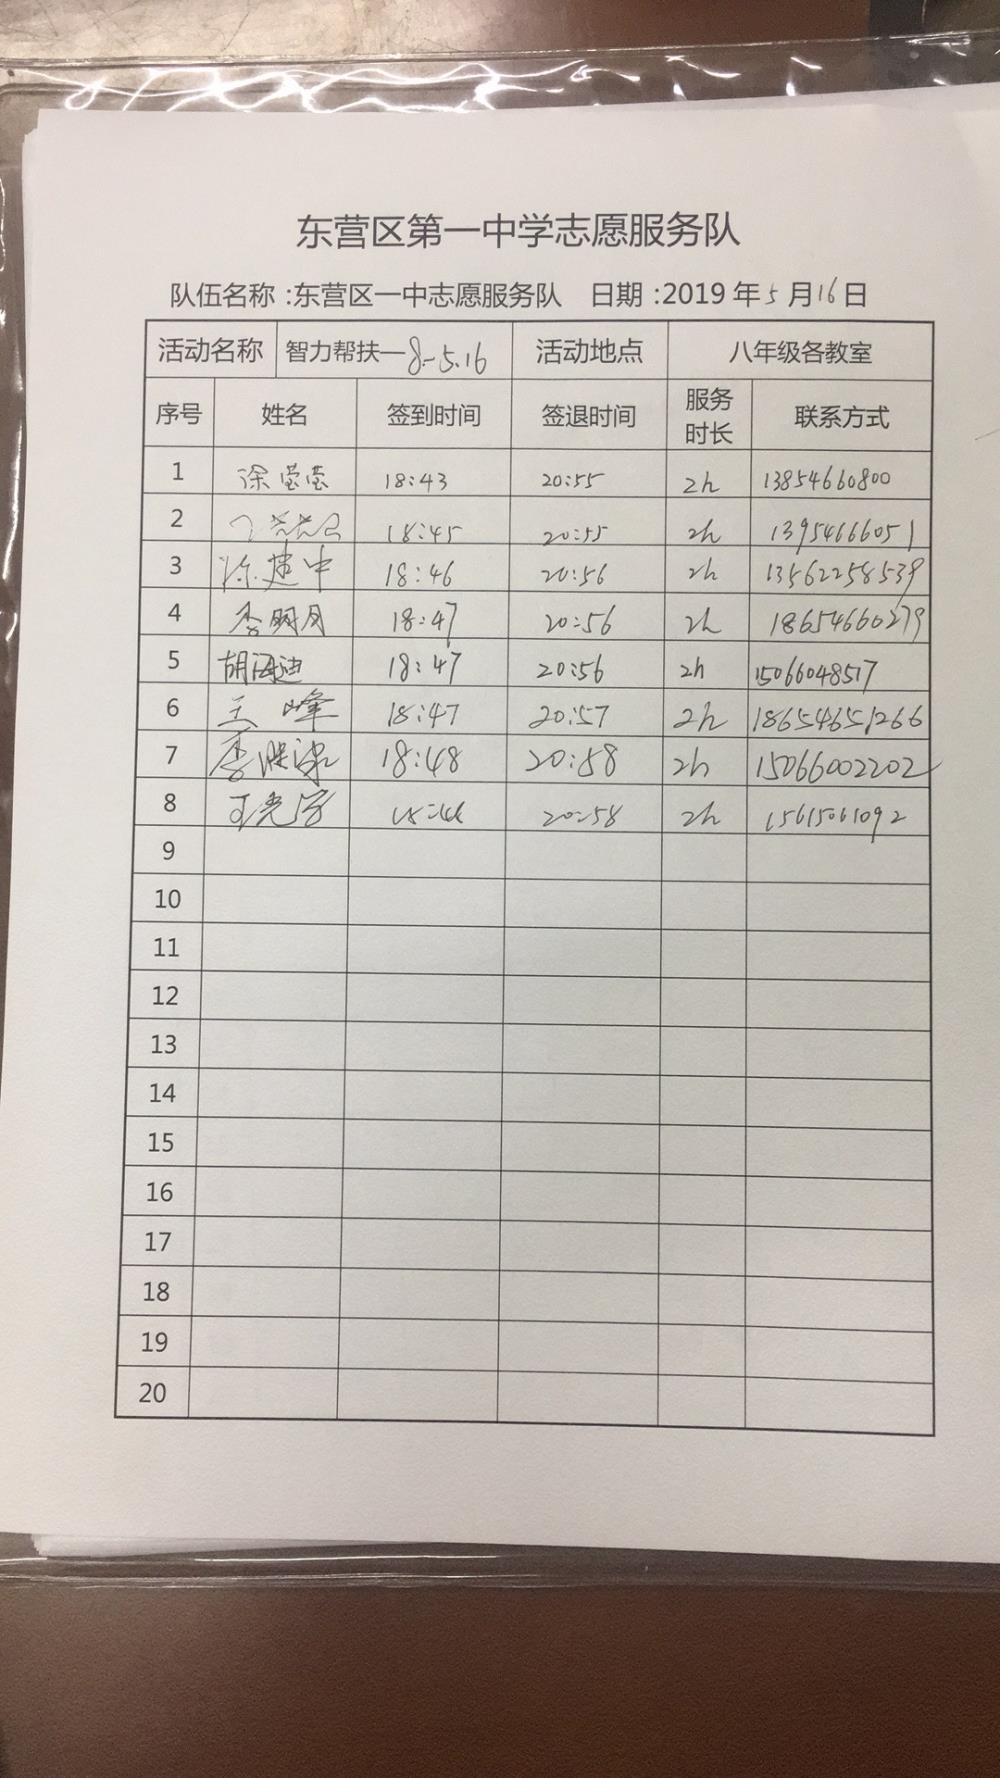 东营区第一中学志愿服务队
队伍名称:东营区一中志愿服务队 日期:2019年5月16日
活动名称 智力帮扶—8-5.16 活动地点 八年级各教室
序号 姓名 签到时间 签退时间 服务时长 联系方式
1 徐莹莹 18:43 20:55 2h 13854660800
2 18:45 20:55 2h 13954666051
3 徐建中 18:46 20:56 2h 13562258539
4 李明月 18:47 20:56 2h 18654660279
5 胡海迪 18:47 20:56 2h 15066048517
6 王峰 18:47 20:57 2h 18654651266
7 李 18:48 20:58 2h 15066002202
8 王 20:58 2h 15615061092
9
10
11
12
13
14
15
16
17
18
19
20